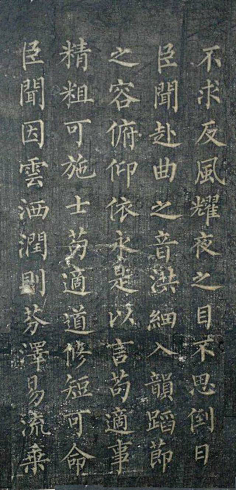 不求反風耀夜之目不思倒日
臣聞赴曲之音洪細入韻蹈節
之容俯仰依永是以言苟適事
精粗可施士苟適道修短可命
臣聞因雲洒潤則芬澤易流乗